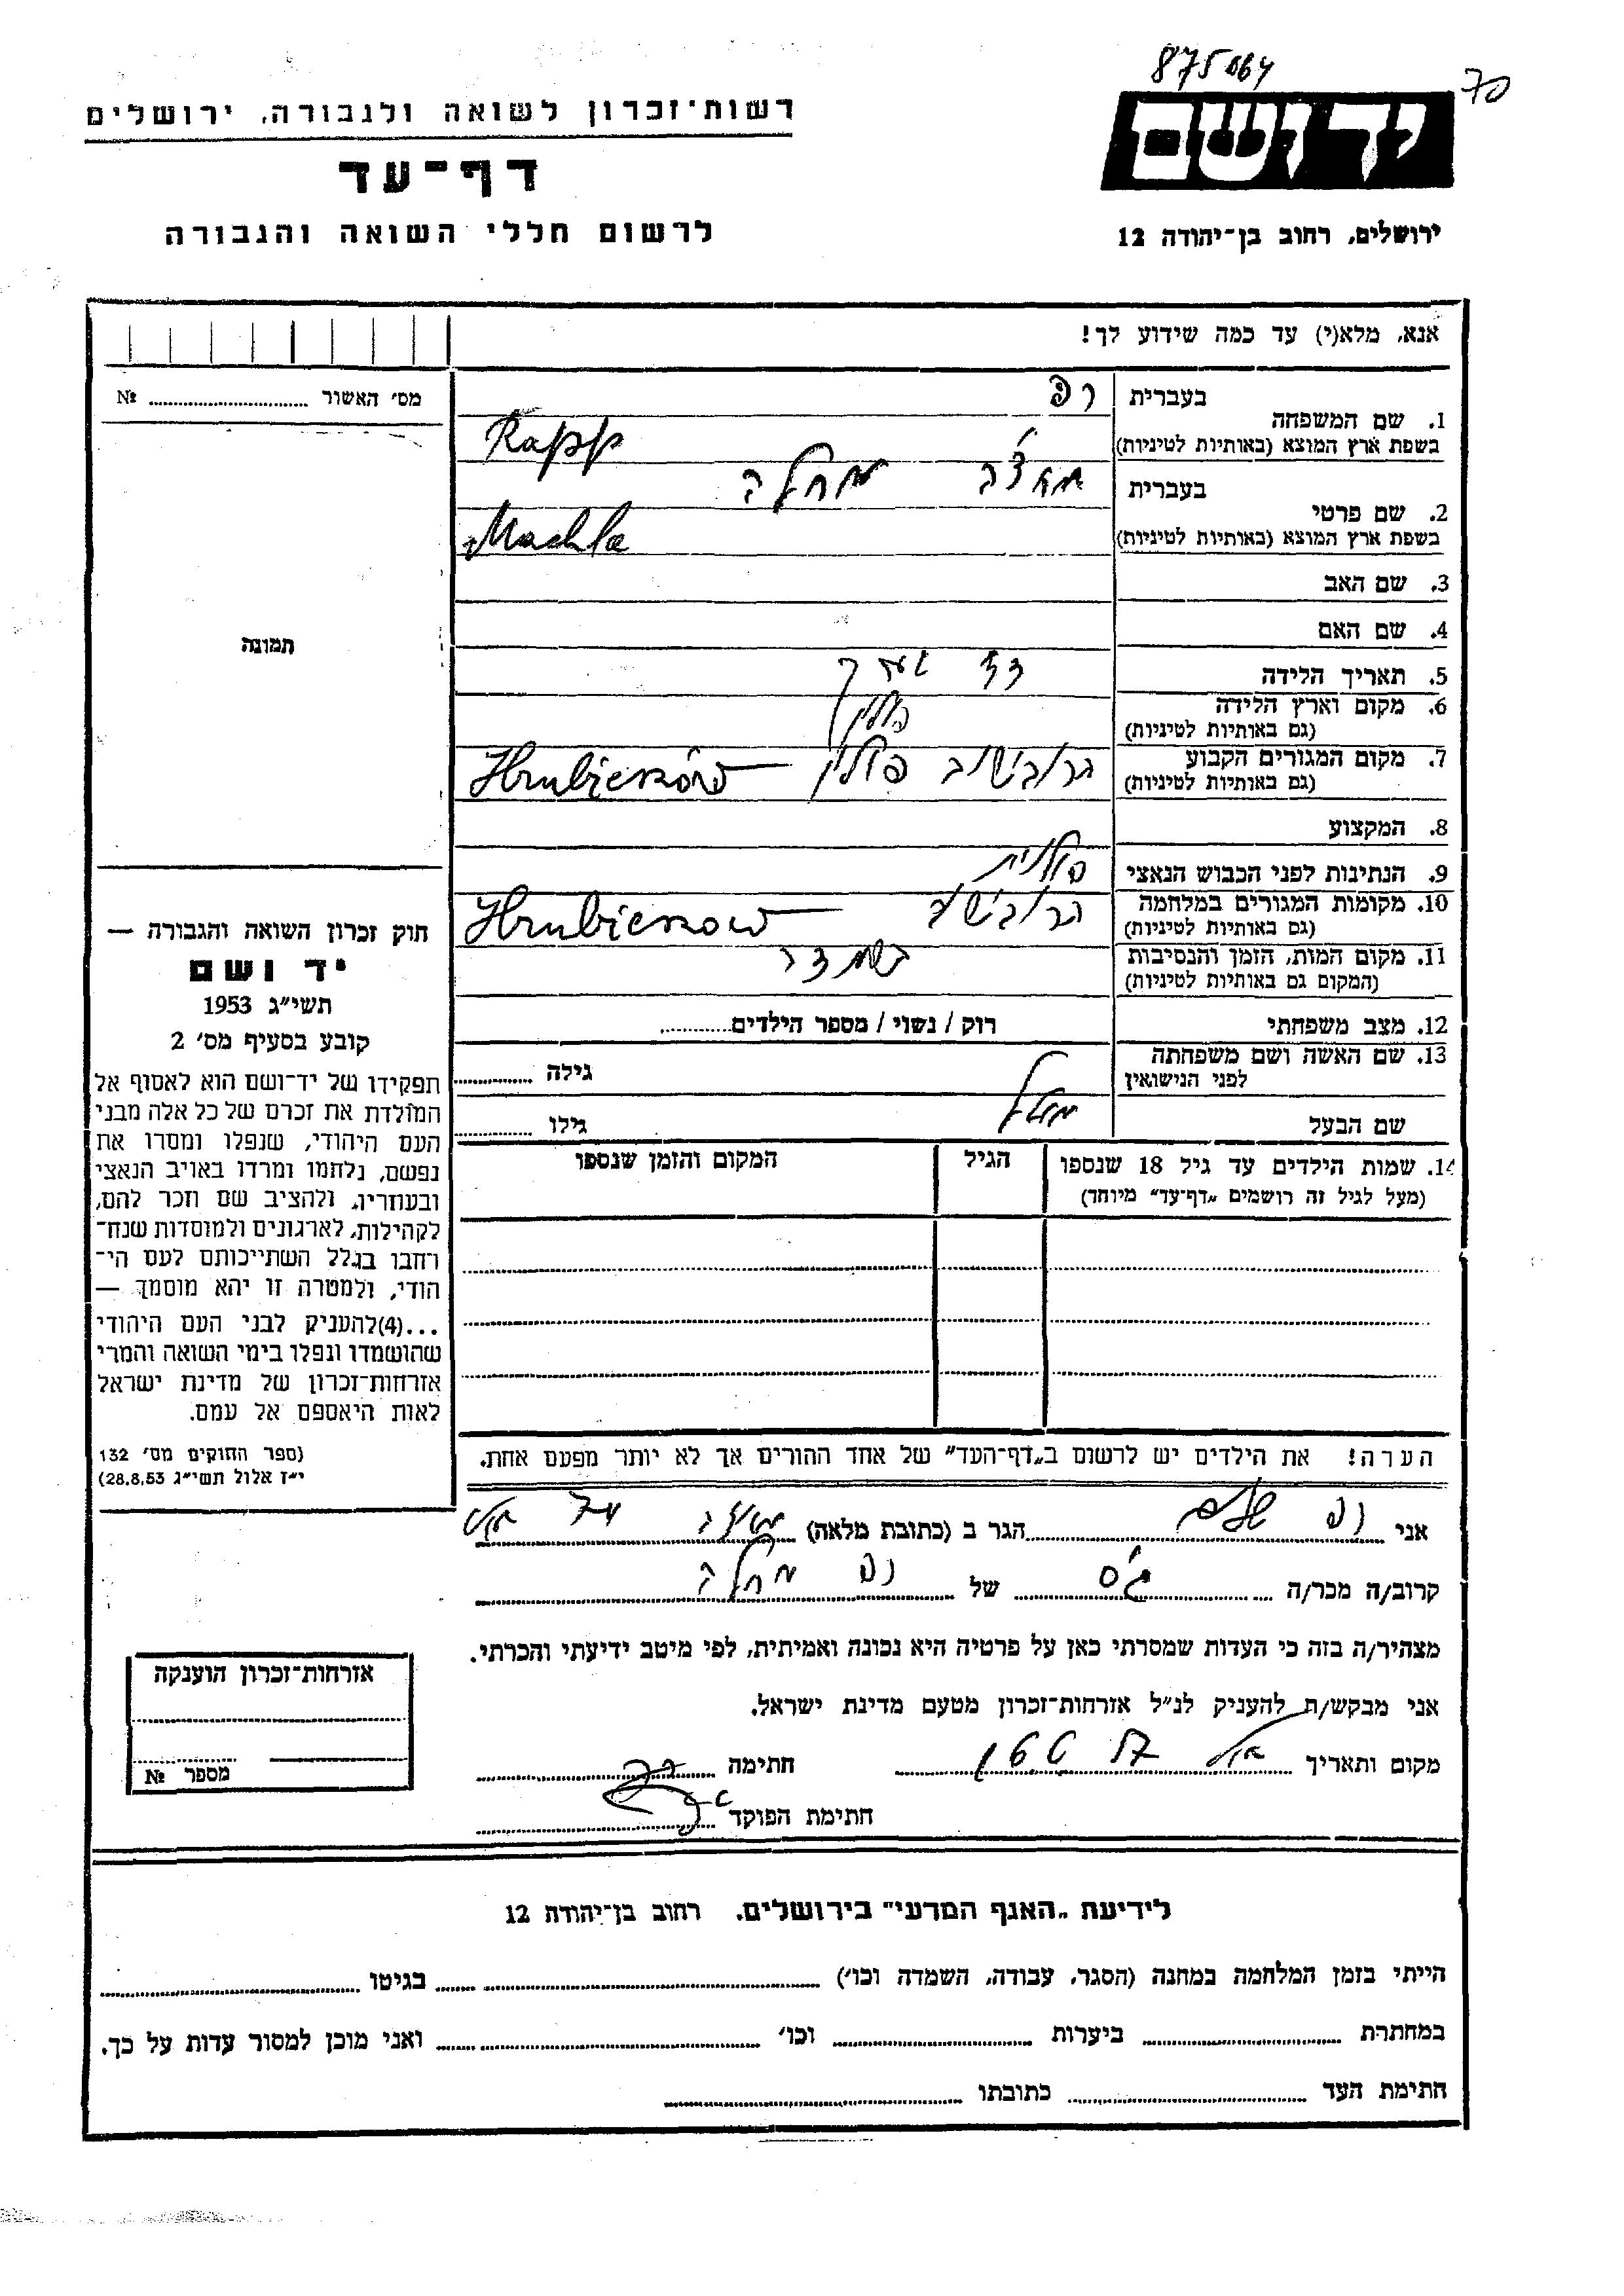 875064
70
רשות־זכרון לשואה ולגבורה, ירושלים
ידושם
דף־עד
לרשום חללי השואה והגבורה
ירושלים, רחוב בן־יהודה 12
אנא, מלא(י) עד כמה שידוע לך!
מס׳ האשור № ........
1. שם המשפחה
בעברית רפ
בשפת ארץ המוצא (באותיות לטיניות) Rapp
2. שם פרטי
בעברית מחלה
בשפת ארץ המוצא (באותיות לטיניות) Machla
3. שם האב
4. שם האם
תמונה
5. תאריך הלידה
6. מקום וארץ הלידה פולין
(גם באותיות לטיניות)
7. מקום המגורים הקבוע הרובישוב פולין Hrubieszów
(גם באותיות לטיניות)
8. המקצוע
9. הנתינות לפני הכבוש הנאצי פולנית
10. מקומות המגורים במלחמה הרובישוב Hrubieszow
(גם באותיות לטיניות)
11. מקום המות, הזמן והנסיבות
(המקום גם באותיות לטיניות)
12. מצב משפחתי רוק / נשוי / מספר הילדים........
13. שם האשה ושם משפחתה
לפני הנישואין
גילה ........
שם הבעל
גילו ........
14. שמות הילדים עד גיל 18 שנספו
(מעל לגיל זה רושמים „דף־עד״ מיוחד)
הגיל
המקום והזמן שנספו
חוק זכרון השואה והגבורה —
יד ושם
תשי״ג 1953
קובע בסעיף מס׳ 2
תפקידו של יד־ושם הוא לאסוף אל
המולדת את זכרם של כל אלה מבני
העם היהודי, שנפלו ומסרו את
נפשם, נלחמו ומרדו באויב הנאצי
ובעוזריו, ולהציב שם וזכר להם,
לקהילות, לארגונים ולמוסדות שנח־
רחבו בגלל השתייכותם לעם הי־
הודי, ולמטרה זו יהא מוסמך —
...(4)להעניק לבני העם היהודי
שהושמדו ונפלו בימי השואה והמרי
אזרחות־זכרון של מדינת ישראל
לאות היאספם אל עמם.
(ספר החוקים מס׳ 132
י״ז אלול תשי״ג 28.8.53)
הערה! את הילדים יש לרשום ב„דף־העד״ של אחד ההורים אך לא יותר מפעם אחת.
אני רפ שלום הגר ב (כתובת מלאה)
קרוב/ה מכר/ה גיס של רפ מחלה
מצהיר/ה בזה כי העדות שמסרתי כאן על פרטיה היא נכונה ואמיתית, לפי מיטב ידיעתי והכרתי.
אני מבקש/ת להעניק לנ״ל אזרחות־זכרון מטעם מדינת ישראל.
מקום ותאריך
חתימה
חתימת הפוקד
אזרחות־זכרון הוענקה
מספר №
לידיעת „האגף המדעי״ בירושלים, רחוב בן־יהודה 12
הייתי בזמן המלחמה במחנה (הסגר, עבודה, השמדה וכו׳) ........ בגיטו ........
במחתרת ........ ביערות ........ וכו׳ ........ ואני מוכן למסור עדות על כך.
חתימת העד ........ כתובתו ........